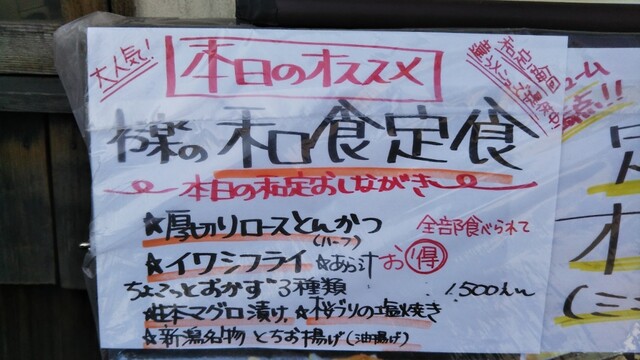 大人気!
本日のオススメ
和定毎回
違うメニュー提供中!
楽の和食定食
本日の和定おしながき
★厚切りロースとんかつ
(ハーフ)
全部食べられて
★イワシフライ ☆あら汁 お得
ちょこっとおかず3種類
1,500えん
★本マグロ漬け ★桜ブリの塩焼き
★新潟名物 とちお揚げ(油揚げ)